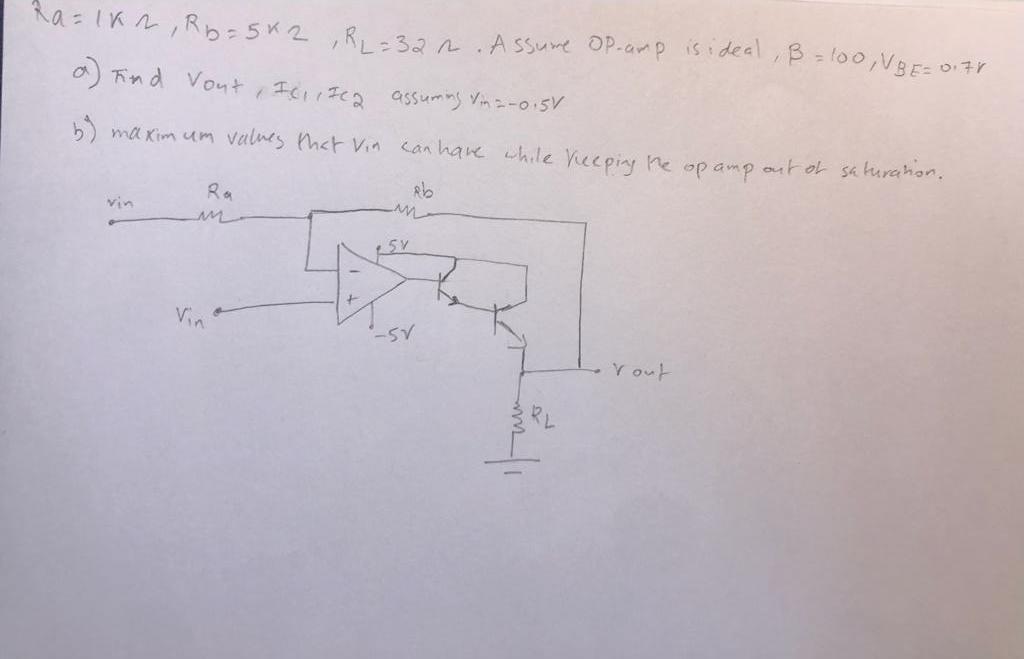 Ra = 1K Ω, Rb = 5KΩ, RL = 32 Ω. Assume OP-amp is ideal, β = 100, VBE = 0.7V
a) Find Vout, Ic1, Ic2 assuming Vin = -0.5V
b) maximum values that Vin can have while keeping the op amp out of saturation.
vin
Ra
Rb
5V
-
+
Vin
-5V
Vout
RL